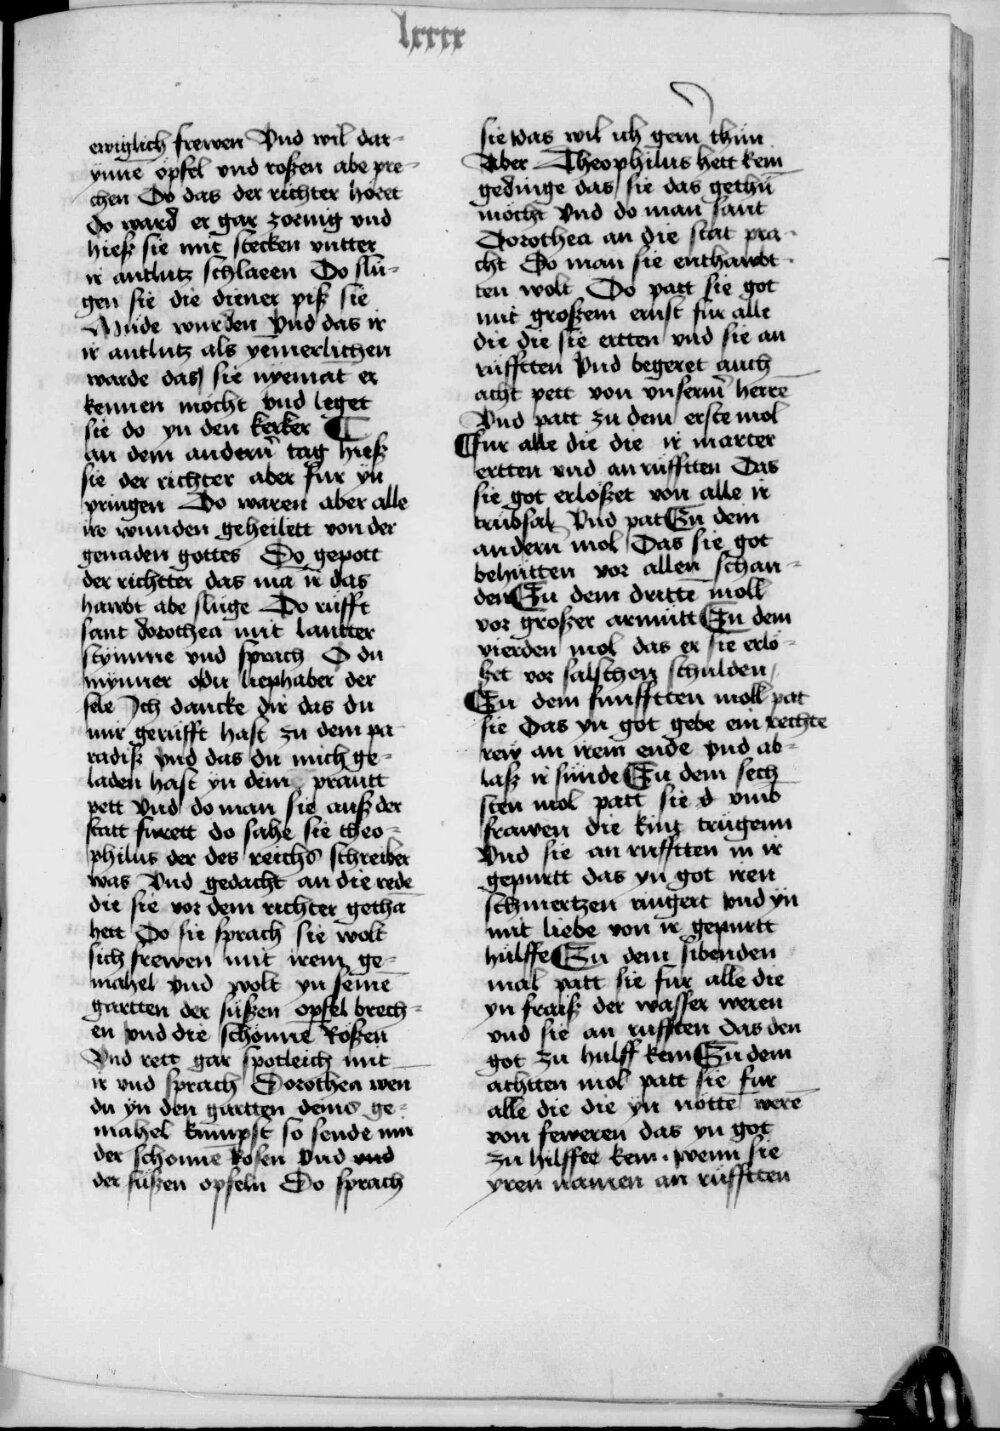 lxxxx
ewiglich frewen Vnd wil dar-
ynne opfel vnd roßen abe pre-
chen Do das der richter horet
do ward er gar zornig vnd
hieß sie mit stecken vntter
ir antlutz schlaeen Do slu-
gen sie die diener piß sie
Mude wurden Vnd das ir
ir antlutz als yemerlichen
warde das sie nyemat er
kennen mocht vnd leget
sie do yn den kerker ¶
an dem andern tag hieß
sie der richter aber fur yn
pringen Do waren aber alle
ire wunden geheilett von der
genaden gottes Do gepott
der richtter das ma ir das
hawbt abe sluge Do rufft
sant dorothea mit lautter
stymme vnd sprach O du
mynner o du liephaber der
sele Ich dancke dir das du
mir gerufft hast zu dem pa
radiß vnd das du mich ge-
laden hast yn dem prautt
pett Vnd do man sie auß der
statt furett do sahe sie theo-
philus der des reichs schreiber
was Vnd gedacht an die rede
die sie vor dem richter gethā
hett Do sie sprach sie wolt
sich frewen mit irem ge-
mahel vnd wolt yn seinē
gartten der sußen opfel brech-
en vnd die schonne Roßen
Vnd rett gar spotleich mit
ir vnd sprach Dorothea wen
du yn den gartten deins ge-
mahel kumpst so sende mir
der schonne Rosen vnd vnd
der sußen opfeln Do sprach
sie das wil ich gern thun
Aber Theophilus hett kein
gedinge das sie das gethū
mocht Vnd do man sant
Dorothea an die stat pra-
cht Do man sie enthawbt-
ten wolt Do patt sie got
mit großem ernst fur alle
die die sie ertten vnd sie an
rufftten Vnd begeret auch
acht pett von vnserm herrē
Vnd patt zu dem erste mol
¶ fur alle die die ir marter
ertten vnd an rufftten Das
sie got erloßet von alle ir
trubsal Vnd pat Zu dem
andern mol Das sie got
behutten vor allen schan-
den Zu dem dritte moll
vor großer armutt Zu dem
vierden mol das er sie erlo-
ßet vor falschen schulden
Zu dem funfftten moll pat
sie Das yn got gebe ein rechte
rew an irem ende vnd ab-
laß ir sunde Zu dem sech
sten mol patt sie d vmb
frawen die kint trugenn
Vnd sie an rufftten in ir
gepurtt das yn got iren
schmertzen ringert vnd yn
mit liebe von ir gepurtt
hulffe Zu dem sibenden
mal patt sie fur alle die
yn fraiß der wasser weren
vnd sie an rufften das den
got zu hulff kem Zu dem
achtten mol patt sie fur
alle die die yn notte werē
von feweren das yn got
zu hilffee kem. wenn sie
yren namen an rufftten